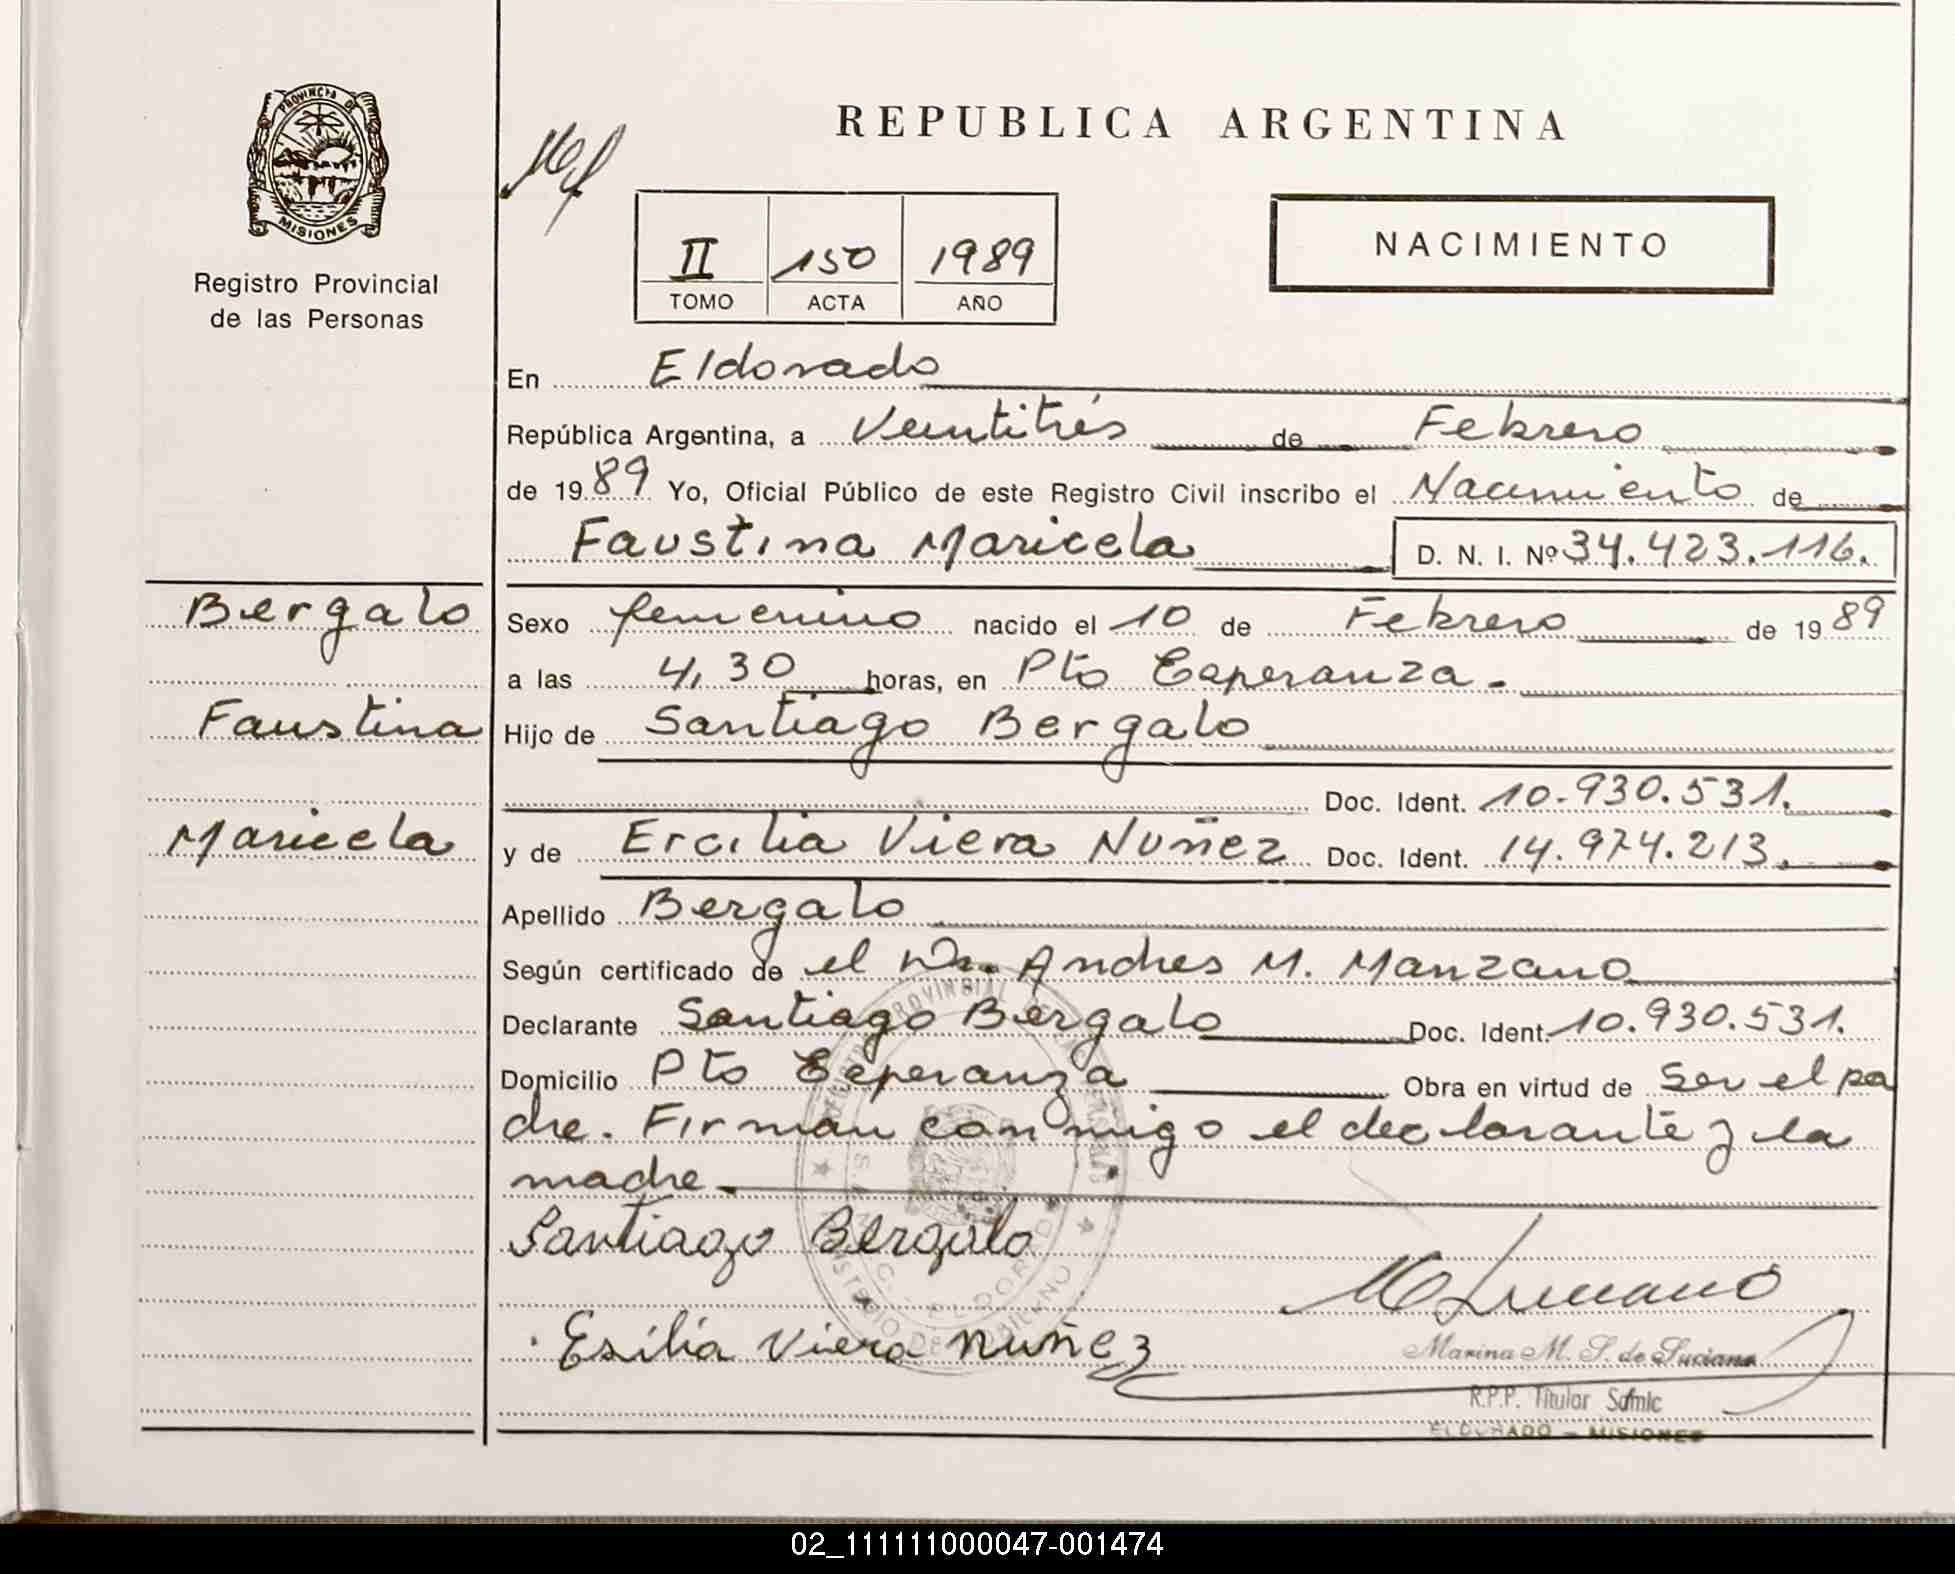 PROVINCIA DE
MISIONES
Registro Provincial
de las Personas
REPUBLICA ARGENTINA
NACIMIENTO
II 150 1989
TOMO ACTA AÑO
En Eldorado
República Argentina, a Veintitrés de Febrero
de 1989 Yo, Oficial Público de este Registro Civil inscribo el Nacimiento de
Faustina Maricela D. N. I. Nº 34.423.116.
Bergalo
Faustina
Maricela
Sexo femenino nacido el 10 de Febrero de 1989
a las 4,30 horas, en Pto Esperanza.
Hijo de Santiago Bergalo
Doc. Ident. 10.930.531.
y de Ercilia Viera Nuñez Doc. Ident. 14.974.213.
Apellido Bergalo
Según certificado de el Dr. Andres M. Manzano
Declarante Santiago Bergalo Doc. Ident. 10.930.531.
Domicilio Pto Esperanza Obra en virtud de Ser el pa
dre. Firman conmigo el declarante y la
madre.
Santiago Bergalo
Esilia Viera Nuñez
Marina M. S. de Luciano
R.P.P. Titular
ELDORADO - MISIONES
02_111111000047-001474